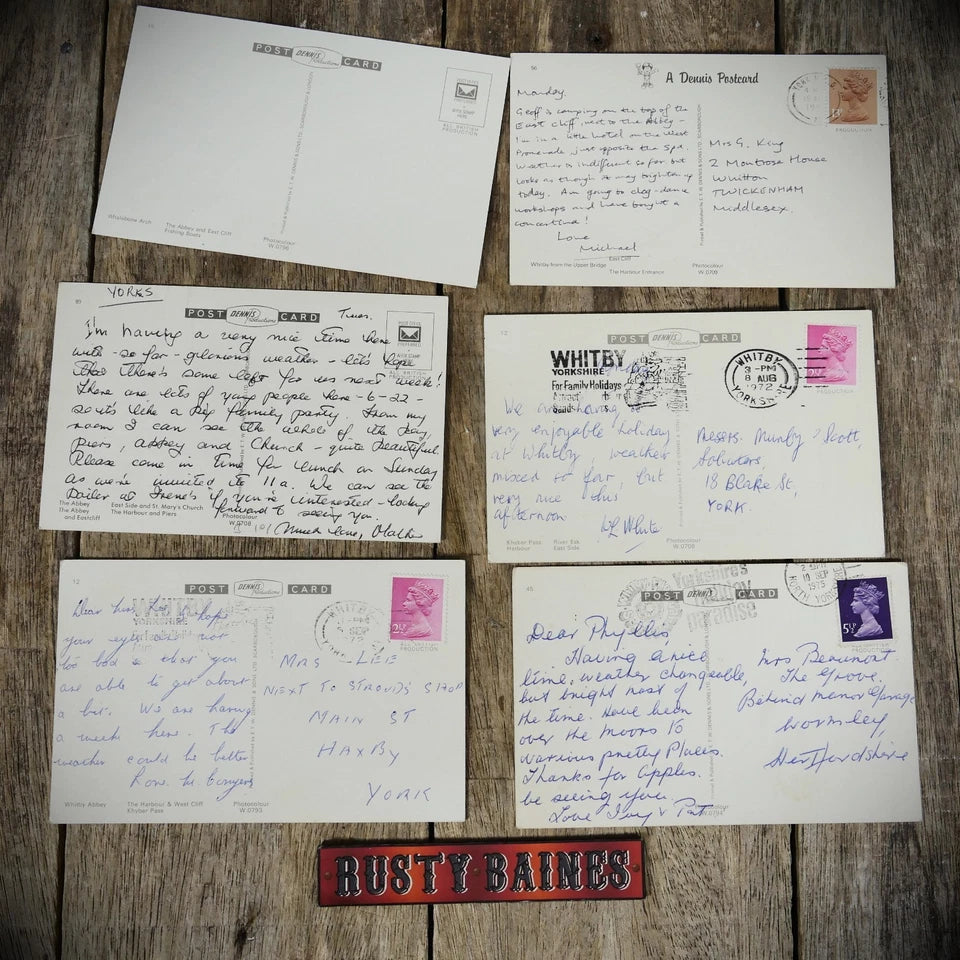 15
POST DENNIS Productions CARD
ALL BRITISH
PRODUCTION
Whalebone Arch
The Abbey and East Cliff
Fishing Boats
Photocolour
W.0796
56
A Dennis Postcard
PRODUCTION
Monday.
Geoff is camping on the top of the
East cliff, next to the Abbey -
I'm in a little hotel on the West
Promenade just opposite the Spa.
Weather is indifferent so far but
looks as though it may brighten up
today. Am going to clog-dance
workshops and have bought a
concertina!
Love
Michael
Mrs G. King
2 Montrose House
Whitton
TWICKENHAM
Middlesex.
Whitby from the Upper Bridge
East Cliff
The Harbour Entrance
Photocolour
W.0709
YORKS
POST DENNIS Productions CARD
Tues.
I'm having a very nice time here
with - so far - glorious weather - let's hope
that there's some left for us next week!
There are lots of young people here - 6-22 -
so it's like a big family party. From my
room I can see the whole of the bay
piers, abbey and Church - quite beautiful.
Please come in time for lunch on Sunday
as we're invited to 11a. We can see the
at Irene's if you're interested - looking
forward to seeing you.
Much love,
The Abbey
The Abbey
and Eastcliff
East Side and St. Mary's Church
The Harbour and Piers
Photocolour
W.0708
12
POST DENNIS Productions CARD
WHITBY
YORKSHIRE
For Family Holidays
WHITBY
3 - PM
8 AUG
1972
YORKSHIRE
2½P
PRODUCTION
We are having
very enjoyable holiday
at Whitby, weather
mixed so far, but
very nice this
afternoon
White
Messrs. Munby & Scott,
Solicitors,
18 Blake St,
YORK.
Khyber Pass
Harbour
River Esk
East Side
Photocolour
12
POST DENNIS CARD
WHITBY
YORKSHIRE
WHITBY
SEP
2½P
PRODUCTION
Dear Mrs Lee I hope
your eyes are not
too bad & that you
are able to get about
a bit. We are having
a week here. The
weather could be better
Love.
MRS LEE
NEXT TO STROUD'S SHOP
MAIN ST
HAXBY
YORK
Whitby Abbey
The Harbour & West Cliff
Khyber Pass
Photocolour
W.0793
45
POST DENNIS CARD
Yorkshire's
holiday
paradise
10 SEP
1975
NORTH YORK
5½P
PRODUCTION
Dear Phyllis
Having a nice
time, weather changeable,
but bright most of
the time. Have been
over the moors to
various pretty Places.
Thanks for apples.
be seeing you.
Love Ivy & Pat
Mrs Beaumont.
The Grove.
Behind Manor Garage
Wormley,
Hertfordshire
RUSTY BAINES